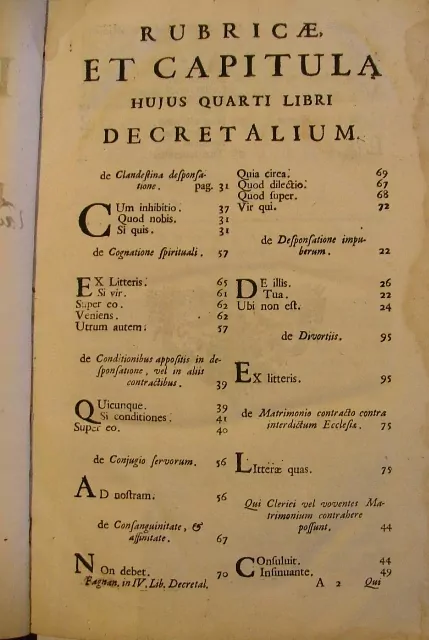 RUBRICÆ,
ET CAPITULA
HUJUS QUARTI LIBRI
DECRETALIUM.
de Clandeſtina deſponſa-
tione. pag. 31
CUm inhibitio. 37
Quod nobis. 31
Si quis. 31
de Cognatione ſpirituali. 57
EX Litteris. 65
Si vir. 61
Super eo. 62
Veniens. 62
Utrum autem. 57
de Conditionibus appoſitis in de-
ſponſatione, vel in aliis
contractibus. 39
QUicunque. 39
Si conditiones. 41
Super eo. 40
de Conjugio ſervorum. 56
AD noſtram. 56
de Conſanguinitate, &
affinitate. 67
NOn debet. 70
Fagnan. in IV. Lib. Decretal.
Quia circa. 69
Quod dilectio. 67
Quod ſuper. 68
Vir qui. 72
de Deſponſatione impu-
berum. 22
DE illis. 26
Tua. 22
Ubi non eſt. 24
de Divortiis. 95
EX litteris. 95
de Matrimonio contracto contra
interdictum Eccleſiæ. 75
LItteræ quas. 75
Qui Clerici vel voventes Ma-
trimonium contrahere
poſſunt. 44
COnſuluit. 44
Inſinuante. 49
A 2 Qui